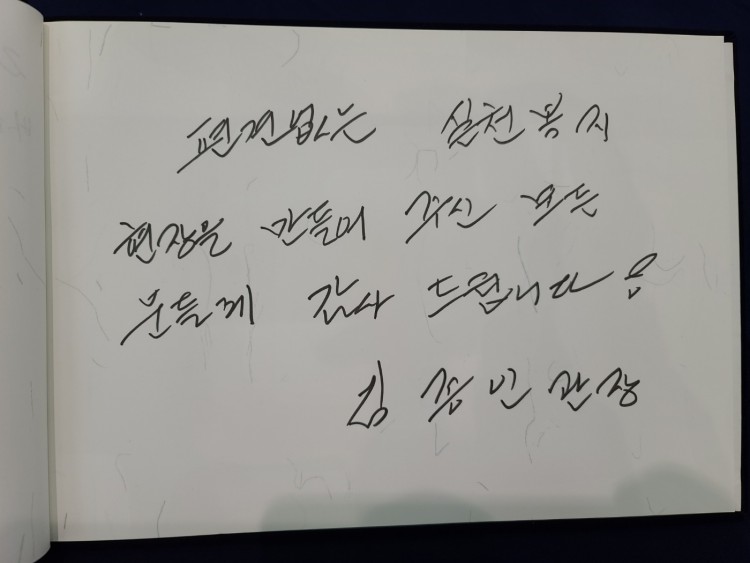 편견없는 실천봉지
현장을 만들어 주신 모든
분들께 감사 드립니다!
김 종인 관장